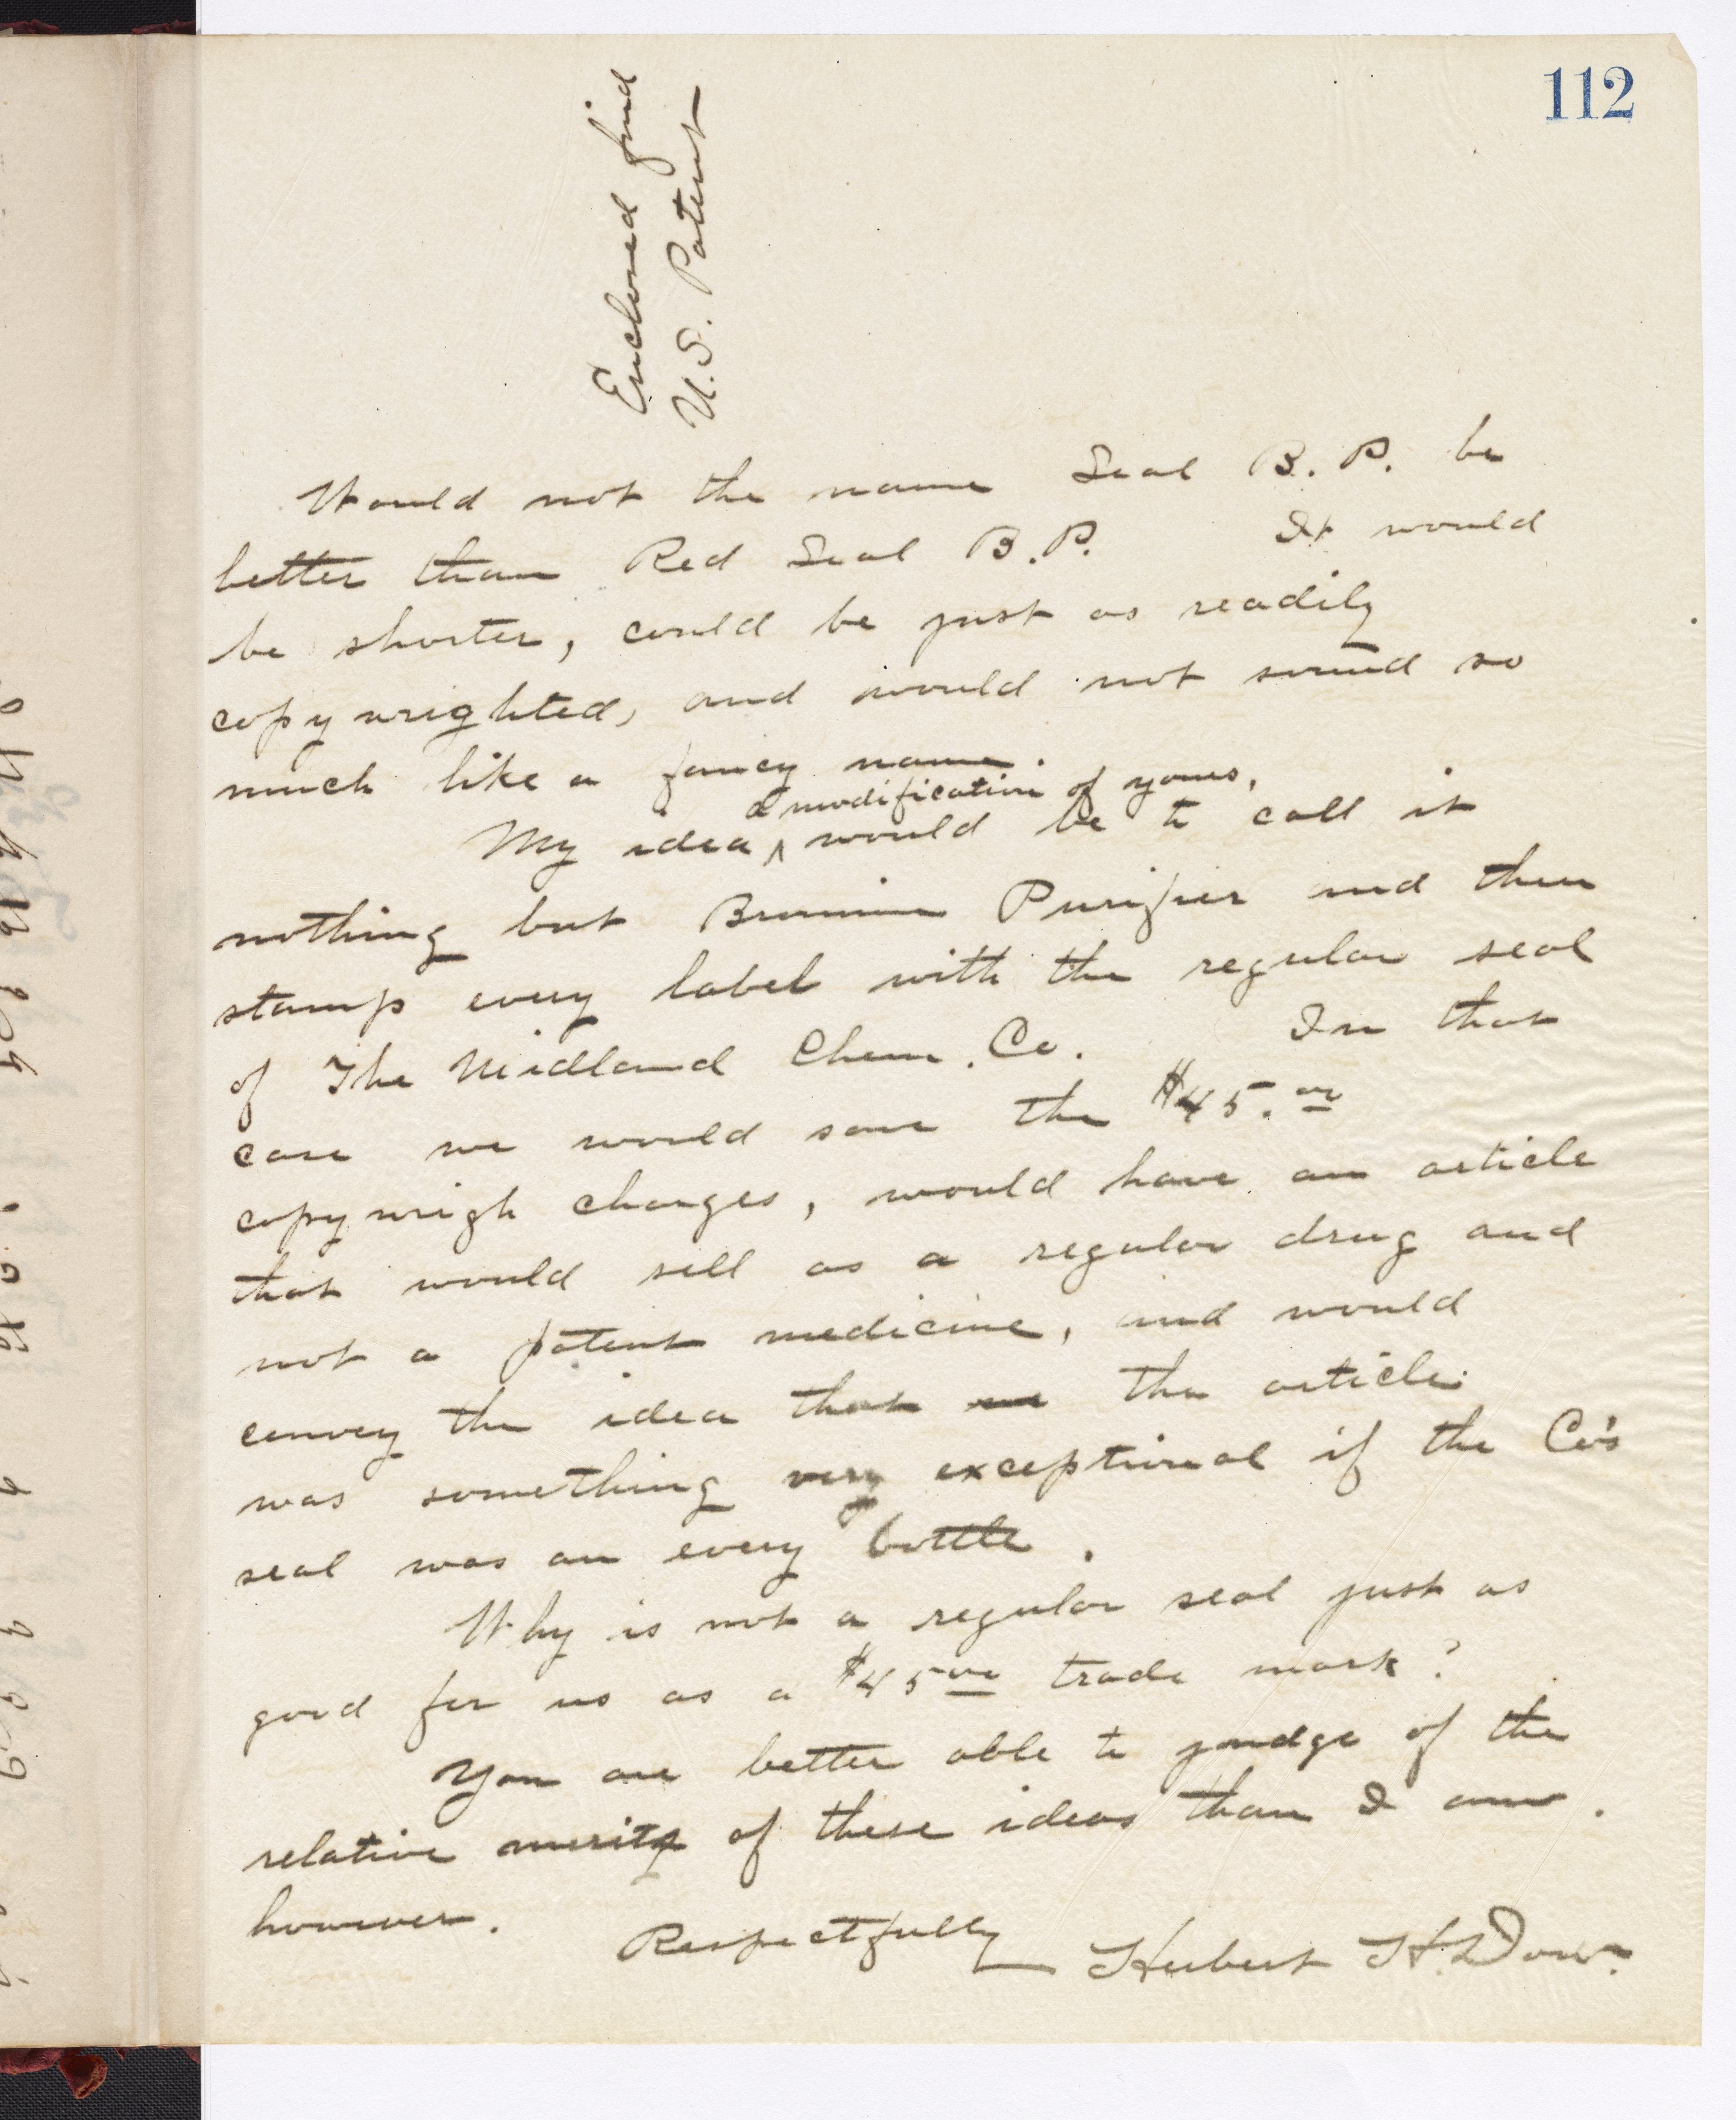 112
Enclosed find
U.S. Patent
Would not the name Seal B. P. be
better than Red Seal B.P. It would
be shorter, could be just as readily
copywrighted, and would not sound so
much like a fancy name.
a modification of yours,
My idea, would be to call it
nothing but Bromine Purifier and then
stamp every label with the regular seal
of The Midland Chem. Co. In that
case we would save the $45.00
copywrigh charges, would have an article
that would sell as a regular drug and
not a patent medicine, and would
convey the idea that the article
was something very exceptional if the Co's
seal was on every bottle.
Why is not a regular seal just as
good for us as a $45 00 trade mark?
You are better able to judge of the
relative merits of these ideas than I am.
however.
Respectfully Herbert H. Dow.